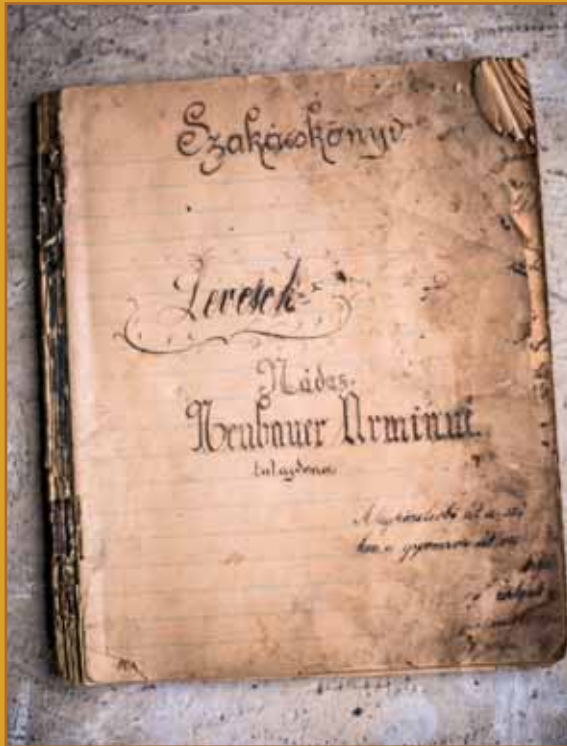 Szakácskönyv
Levesek
Nádas.
Neubauer Árminné
tulajdona
A legközelebbi út a szí
hez a gyomron át ve